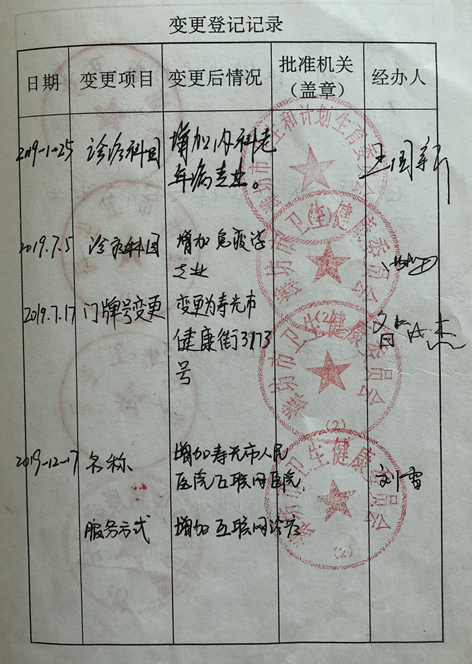 变更登记记录
日期 变更项目 变更后情况 批准机关（盖章） 经办人
2019-1-25 诊疗科目 增加内科老
年病专业。
潍坊市卫生和计划生育委员会
2019.7.5 诊疗科目 增加免疫学
专业
潍坊市卫生健康委员会
(2)
2019.7.17 门牌号变更 变更为寿光市
健康街3173
号
潍坊市卫生健康委员会
(2)
2019-12-17 名称 增加寿光市人民
医院互联网医院 刘雷
服务方式 增加互联网诊疗
潍坊市卫生健康委员会
(2)